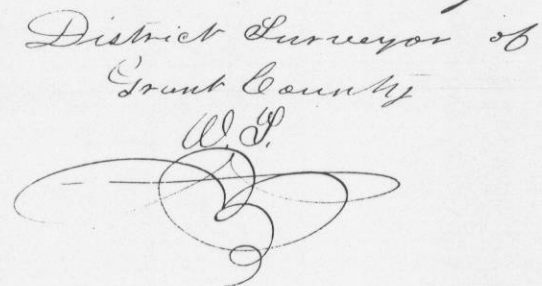 District Surveyor of
Grant County
W. T.